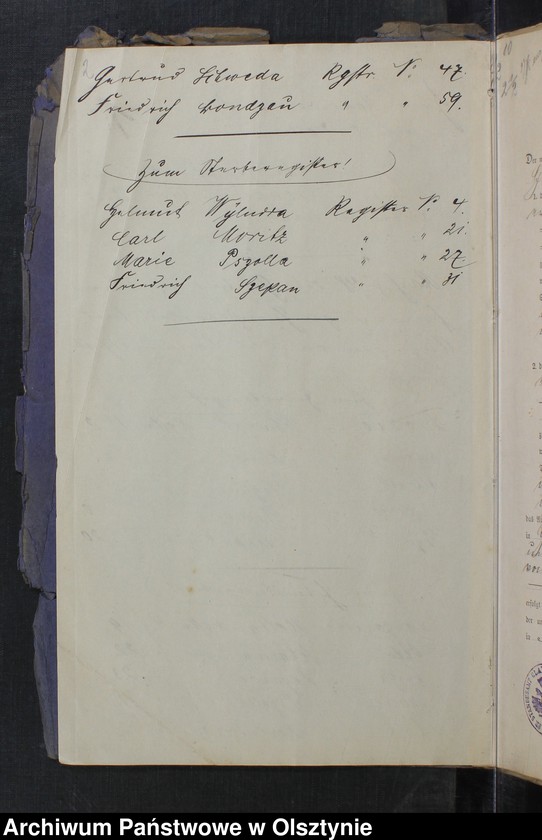 2
Gertrud Sitweda Rgstr N. 47.
Friedrich Bondzau " " 59.
Zum Sterberegister!
Helmut Register N. 4.
Carl Moritz " " 21.
Marie Pszolla " " 27.
Friedrich Szepan " " 31
Archiwum Państwowe w Olsztynie